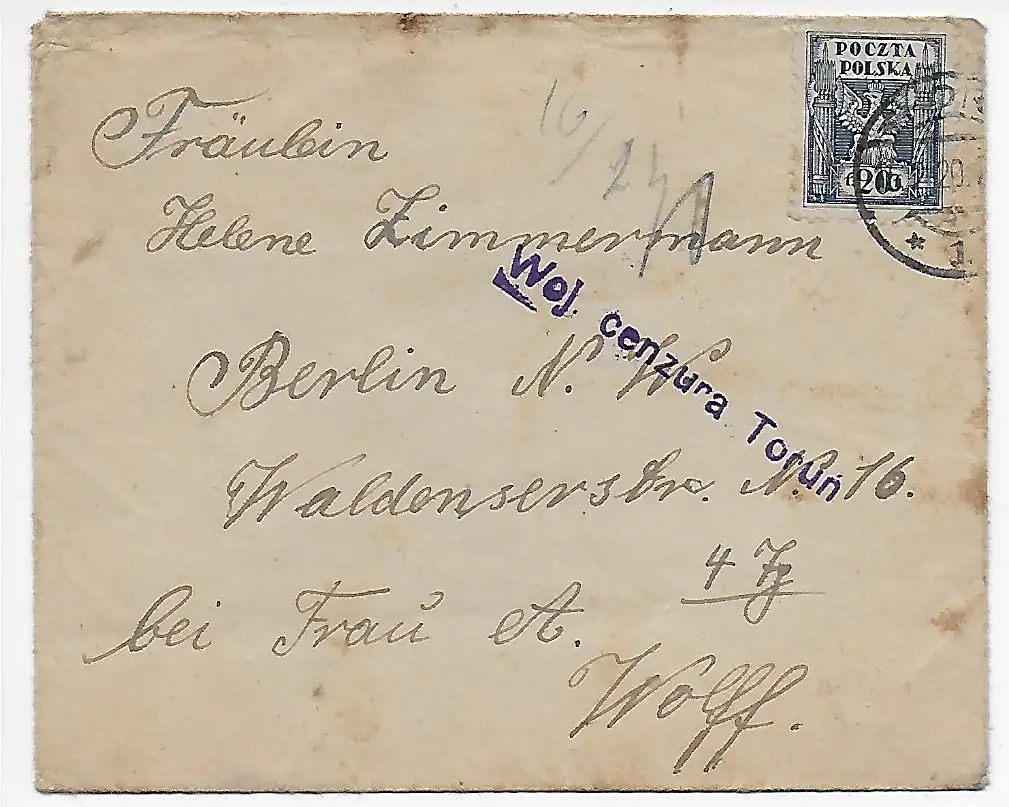 POCZTA
POLSKA
20
20.
* 1
16/24
Fräulein
Helene Zimmermann
Woj. cenzura Toruń
Berlin N. W
Waldenserstr. N. 16.
4 Tz
bei Frau A.
Wolff.